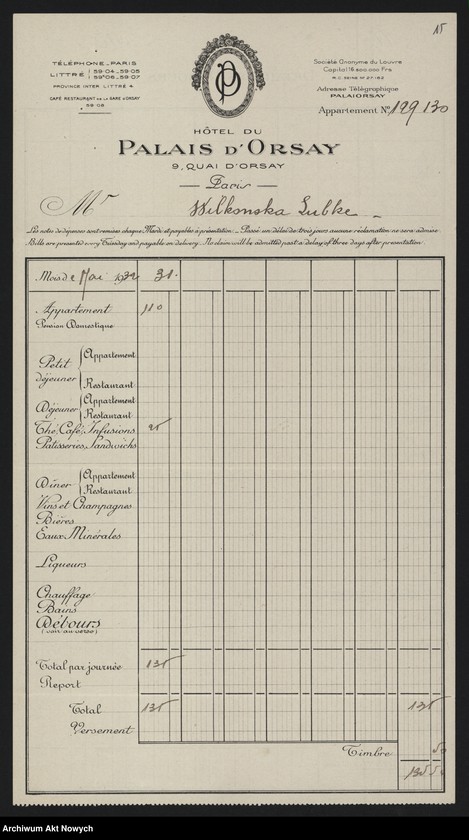 15
TÉLÉPHONE-PARIS
LITTRÉ { 59-04_59-05
59-06_59-07
PROVINCE INTER LITTRÉ 4
CAFÉ RESTAURANT DE LA GARE D'ORSAY
Société Anonyme du Louvre
Adresse Télégraphique
PALAIORSAY
Appartement No 129.130
HÔTEL DU
PALAIS D'ORSAY
9, QUAI D'ORSAY
— Paris —
Mr Wilkonska Lubke _
Les notes de dépenses sont remises chaque Mardi et payables à présentation. _ Passé un délai de trois jours aucune réclamation ne sera admise
Bills are presented every Tuesday and payable on delivery. No claim will be admitted past a delay of three days after presentation.
Mois de Mai 1932 31.
Appartement 110
Pension Domestique
Petit déjeuner { Appartement
Restaurant
Déjeuner { Appartement
Restaurant
Thé, Café, Infusions 25
Pâtisseries, Sandwichs
Dîner { Appartement
Restaurant
Vins et Champagnes
Bières
Eaux Minérales
Liqueurs
Chauffage
Bains
Débours
(voir au verso)
Total par journée 135
Report
Total 135 135
Versement
Timbre 50
135 50
Archiwum Akt Nowych